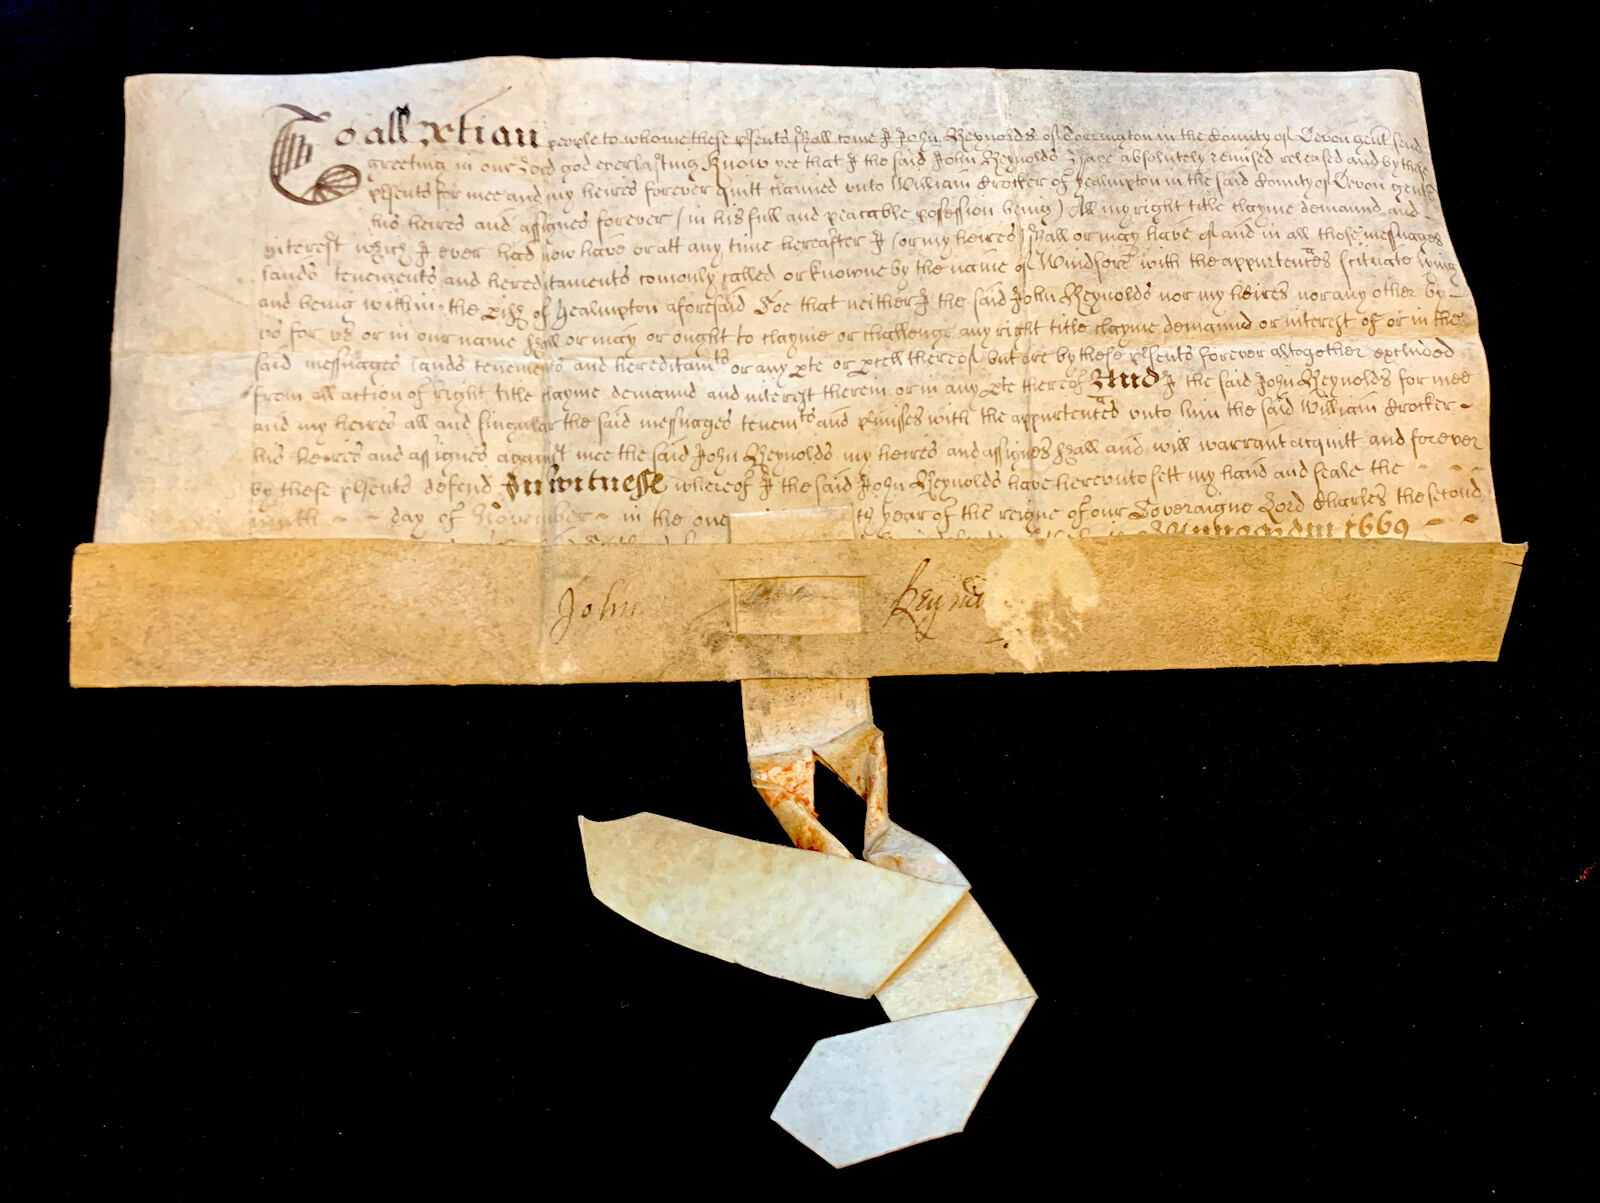 To all xtian people to whome these psents shall come I John Reynolds of Torrington in the County of Devon gent send
greeting in our Lord god everlasting Know yee that I the said John Reynolds Have absolutely remised released and by these
psents for mee and my heires forever quitt claimed unto William Crocker of Yealmpton in the said County of Devon gent
his heires and assignes forever (in his full and peacable posession being) All my right title clayme demaund and
interest which I ever had now have or att any time hereafter I (or my heires) shall or may have of and in all those messuages
lands tenements and hereditaments comonly called or knowne by the name of Windsore with the appurtenances scituate lying
and being within the pish of Yealmpton aforesaid Soe that neither I the said John Reynolds nor my heires nor any other by
us for us or in our name shall or may or ought to clayme or challenge any right title clayme demaund or interest of or in the
said messuages lands tenements and hereditamts or any pte or pcell thereof but are by these psents forever altogether excluded
from all action of right title clayme demaund and interest therein or in any pte thereof And I the said John Reynolds for mee
and my heires all and singular the said messuages tenemts and pmisses with the appurtenances unto him the said William Crocker
his heires and assignes against mee the said John Reynolds my heires and assignes shall and will warrant acquitt and forever
by these psents defend In witnesse whereof I the said John Reynolds have hereunto sett my hand and seale the
ninth day of November in the one ty year of the reigne of our Soveraigne Lord Charles the second
Annoq Dm 1669
John Reynol